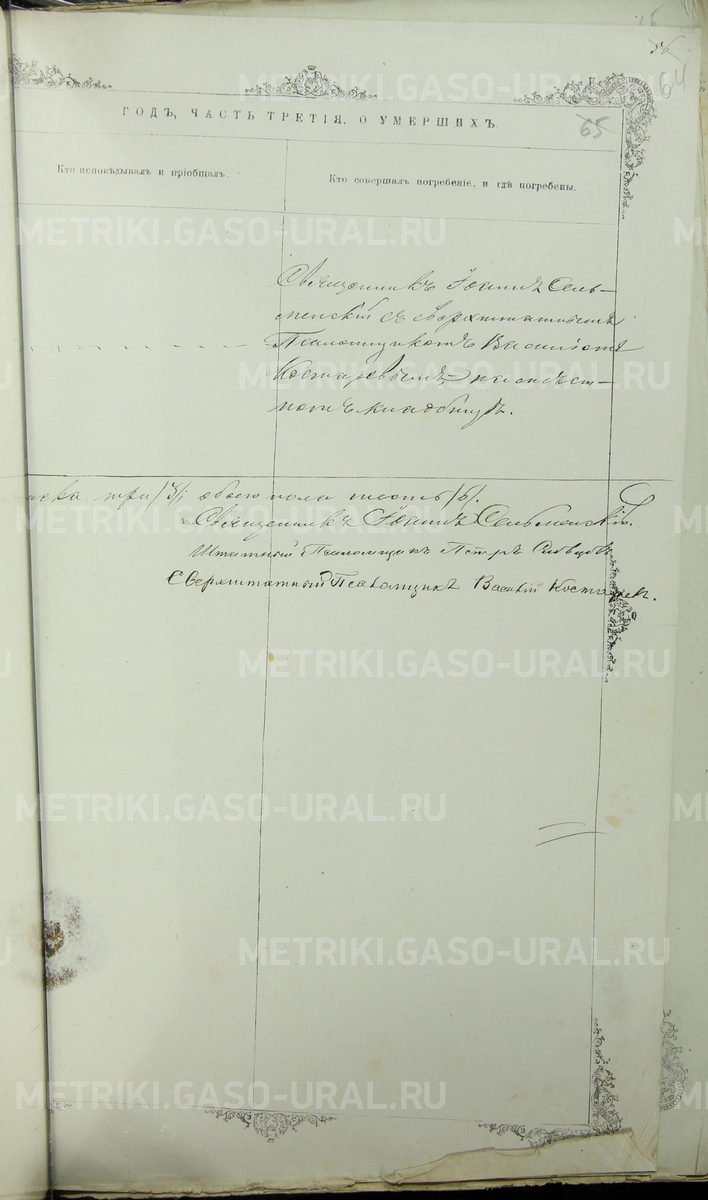 56
64
65
ГОДЪ, ЧАСТЬ ТРЕТІЯ, О УМЕРШИХЪ.
Кто исповѣдывалъ и пріобщалъ.
Кто совершалъ погребеніе, и гдѣ погребены.
Священникъ Іоаннъ Сель-
менскій съ сверхштатнымъ
Псаломщикомъ Василіемъ
Костаревымъ на мѣст-
номъ кладбищѣ.
три /3/, обоего пола шесть /6/.
Священникъ Іоаннъ Сельменскій.
Штатный Псаломщикъ Петръ
Сверхштатный Псаломщикъ Василій Костаревъ.
METRIKI.GASO-URAL.RU